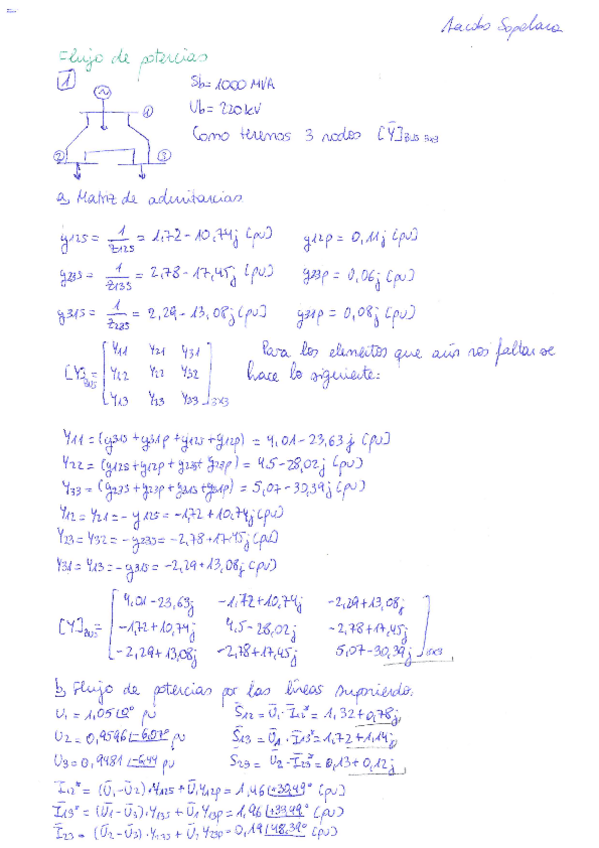 Jacobo Sopelana
Flujo de potencias
1
Sb = 1000 MVA
Ub = 220 kV
Como tenemos 3 nodos [Y]BUS 3x3
~
1
2
3
a) Matriz de admitancias
y12s = 1/Z12s = 1,72 - 10,74j (pu) y12p = 0,11j (pu)
y23s = 1/Z13s = 2,78 - 17,45j (pu) y23p = 0,06j (pu)
y31s = 1/Z23s = 2,29 - 13,08j (pu) y31p = 0,08j (pu)
[Y]BUS = [ Y11 Y21 Y31
Y12 Y22 Y32
Y13 Y23 Y33 ] 3x3
Para los elementos que aún nos faltan se
hace lo siguiente:
Y11 = (y31s + y31p + y12s + y12p) = 4,01 - 23,63j (pu)
Y22 = (y12s + y12p + y23s + y23p) = 4,5 - 28,02j (pu)
Y33 = (y23s + y23p + y31s + y31p) = 5,07 - 30,39j (pu)
Y12 = Y21 = -y12s = -1,72 + 10,74j (pu)
Y23 = Y32 = -y23s = -2,78 + 17,45j (pu)
Y31 = Y13 = -y31s = -2,29 + 13,08j (pu)
[Y]BUS = [ 4,01 - 23,63j -1,72 + 10,74j -2,29 + 13,08j
-1,72 + 10,74j 4,5 - 28,02j -2,78 + 17,45j
-2,29 + 13,08j -2,78 + 17,45j 5,07 - 30,39j ] 3x3
b) Flujo de potencias por las líneas suponiendo:
U1 = 1,05∠0° pu S12 = U1 · I12* = 1,32 + 0,78j
U2 = 0,9596∠-6,07° pu S13 = U1 · I13* = 1,72 + 1,14j
U3 = 0,9481∠-6,44 pu S23 = U2 · I23* = 0,13 + 0,12j
I12* = (U1 - U2) · Y12s + U1 Y12p = 1,46∠+30,49° (pu)
I13* = (U1 - U3) · Y13s + U1 Y13p = 1,96∠+33,49° (pu)
I23 = (U2 - U3) · Y23s + U2 Y23p = 0,19∠48,39° (pu)